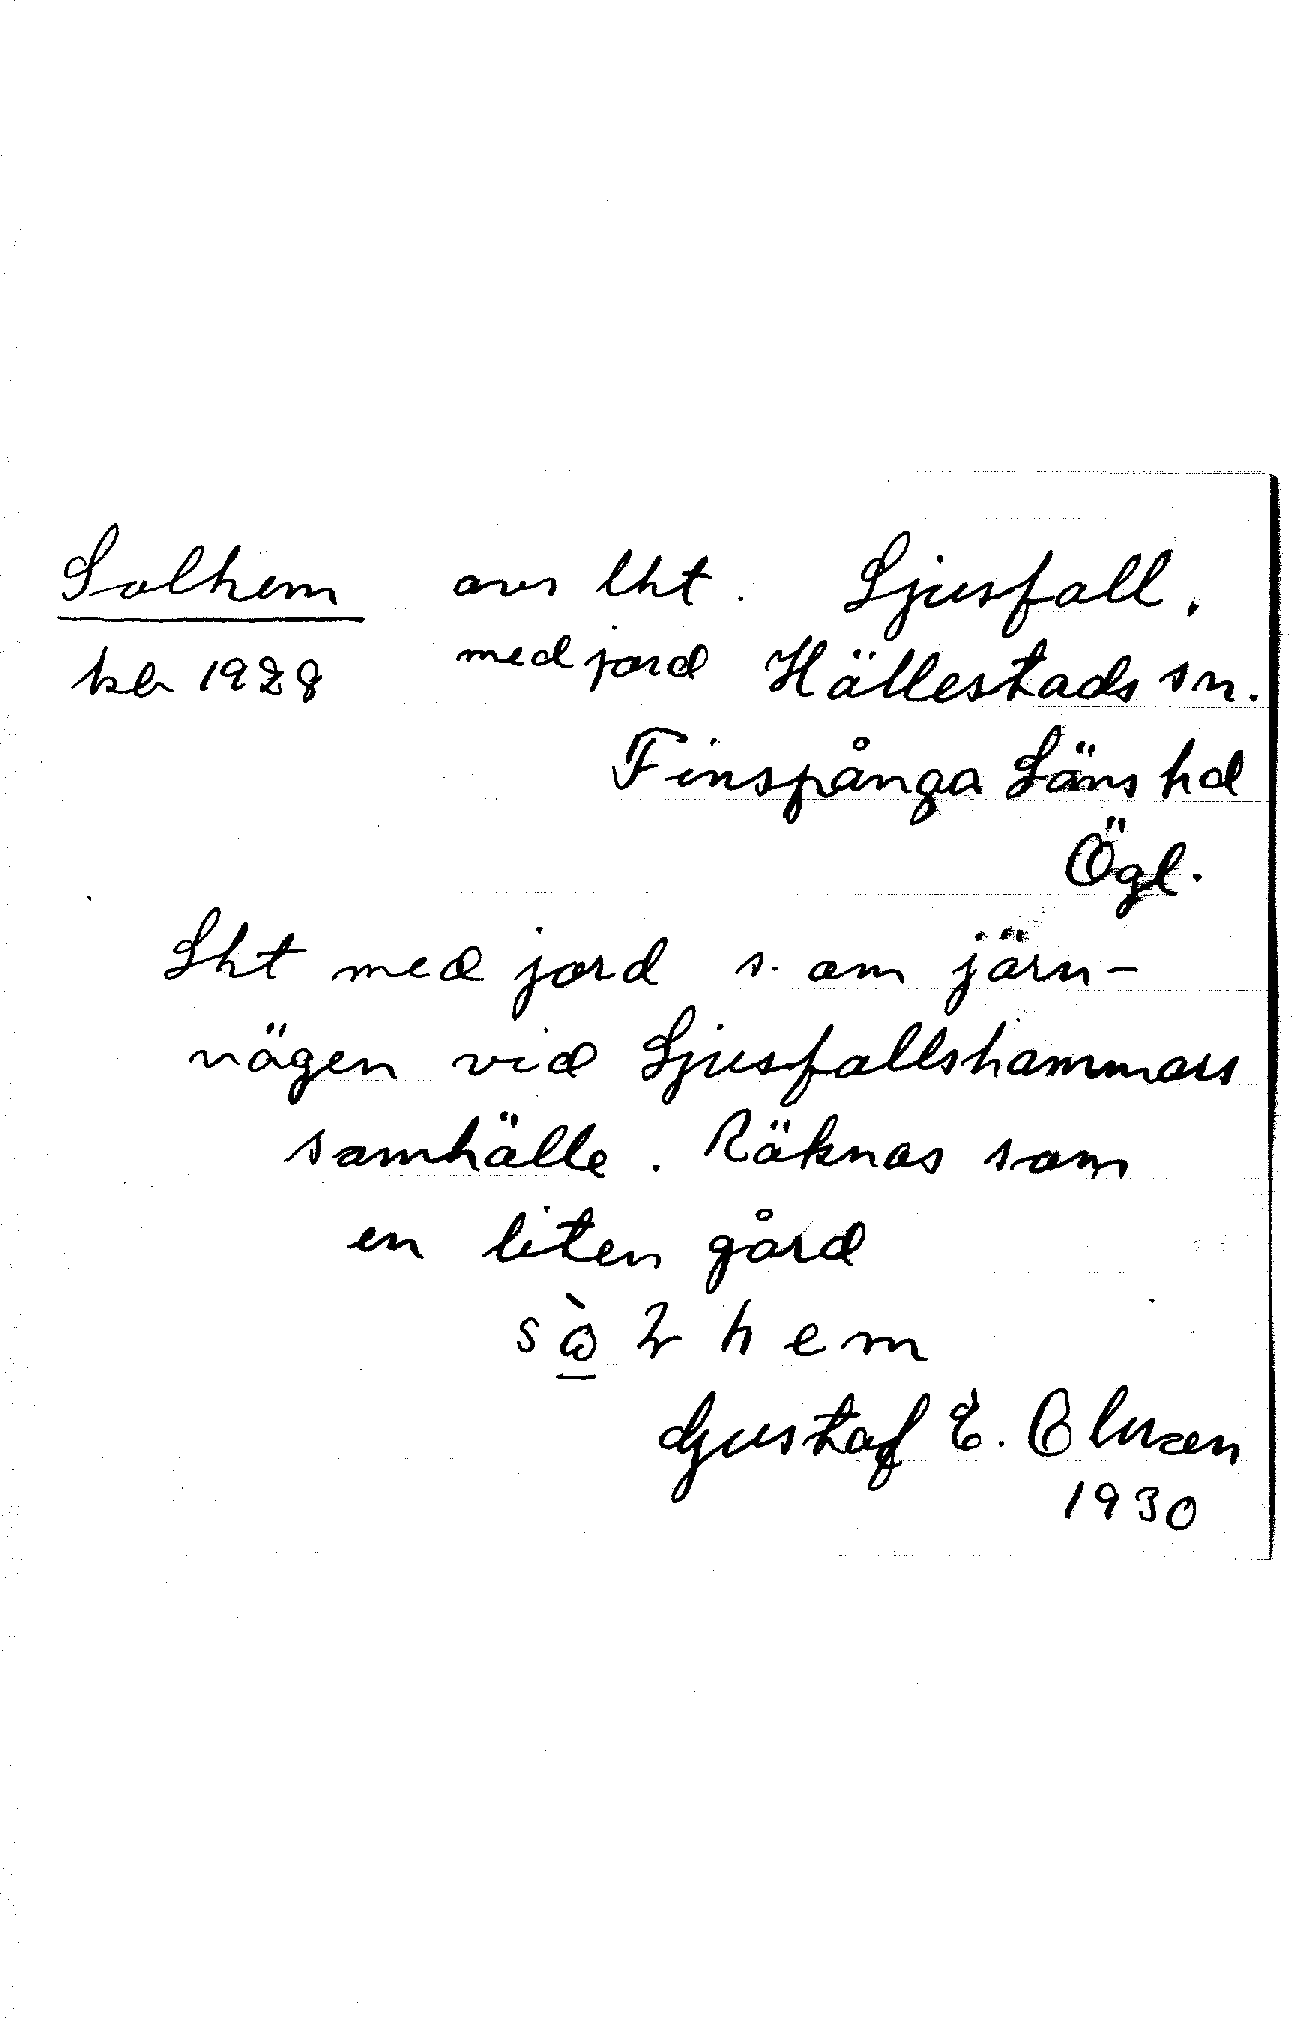 Solhem avs lht. Ljusfall.
kb 1928 med jord Hällestads sn.
Finspånga Läns hd
Ögl.
Lht med jord s. om järn-
vägen vid Ljusfallshammars
samhälle. Räknas som
en liten gård
hem
Gustaf E.
1930